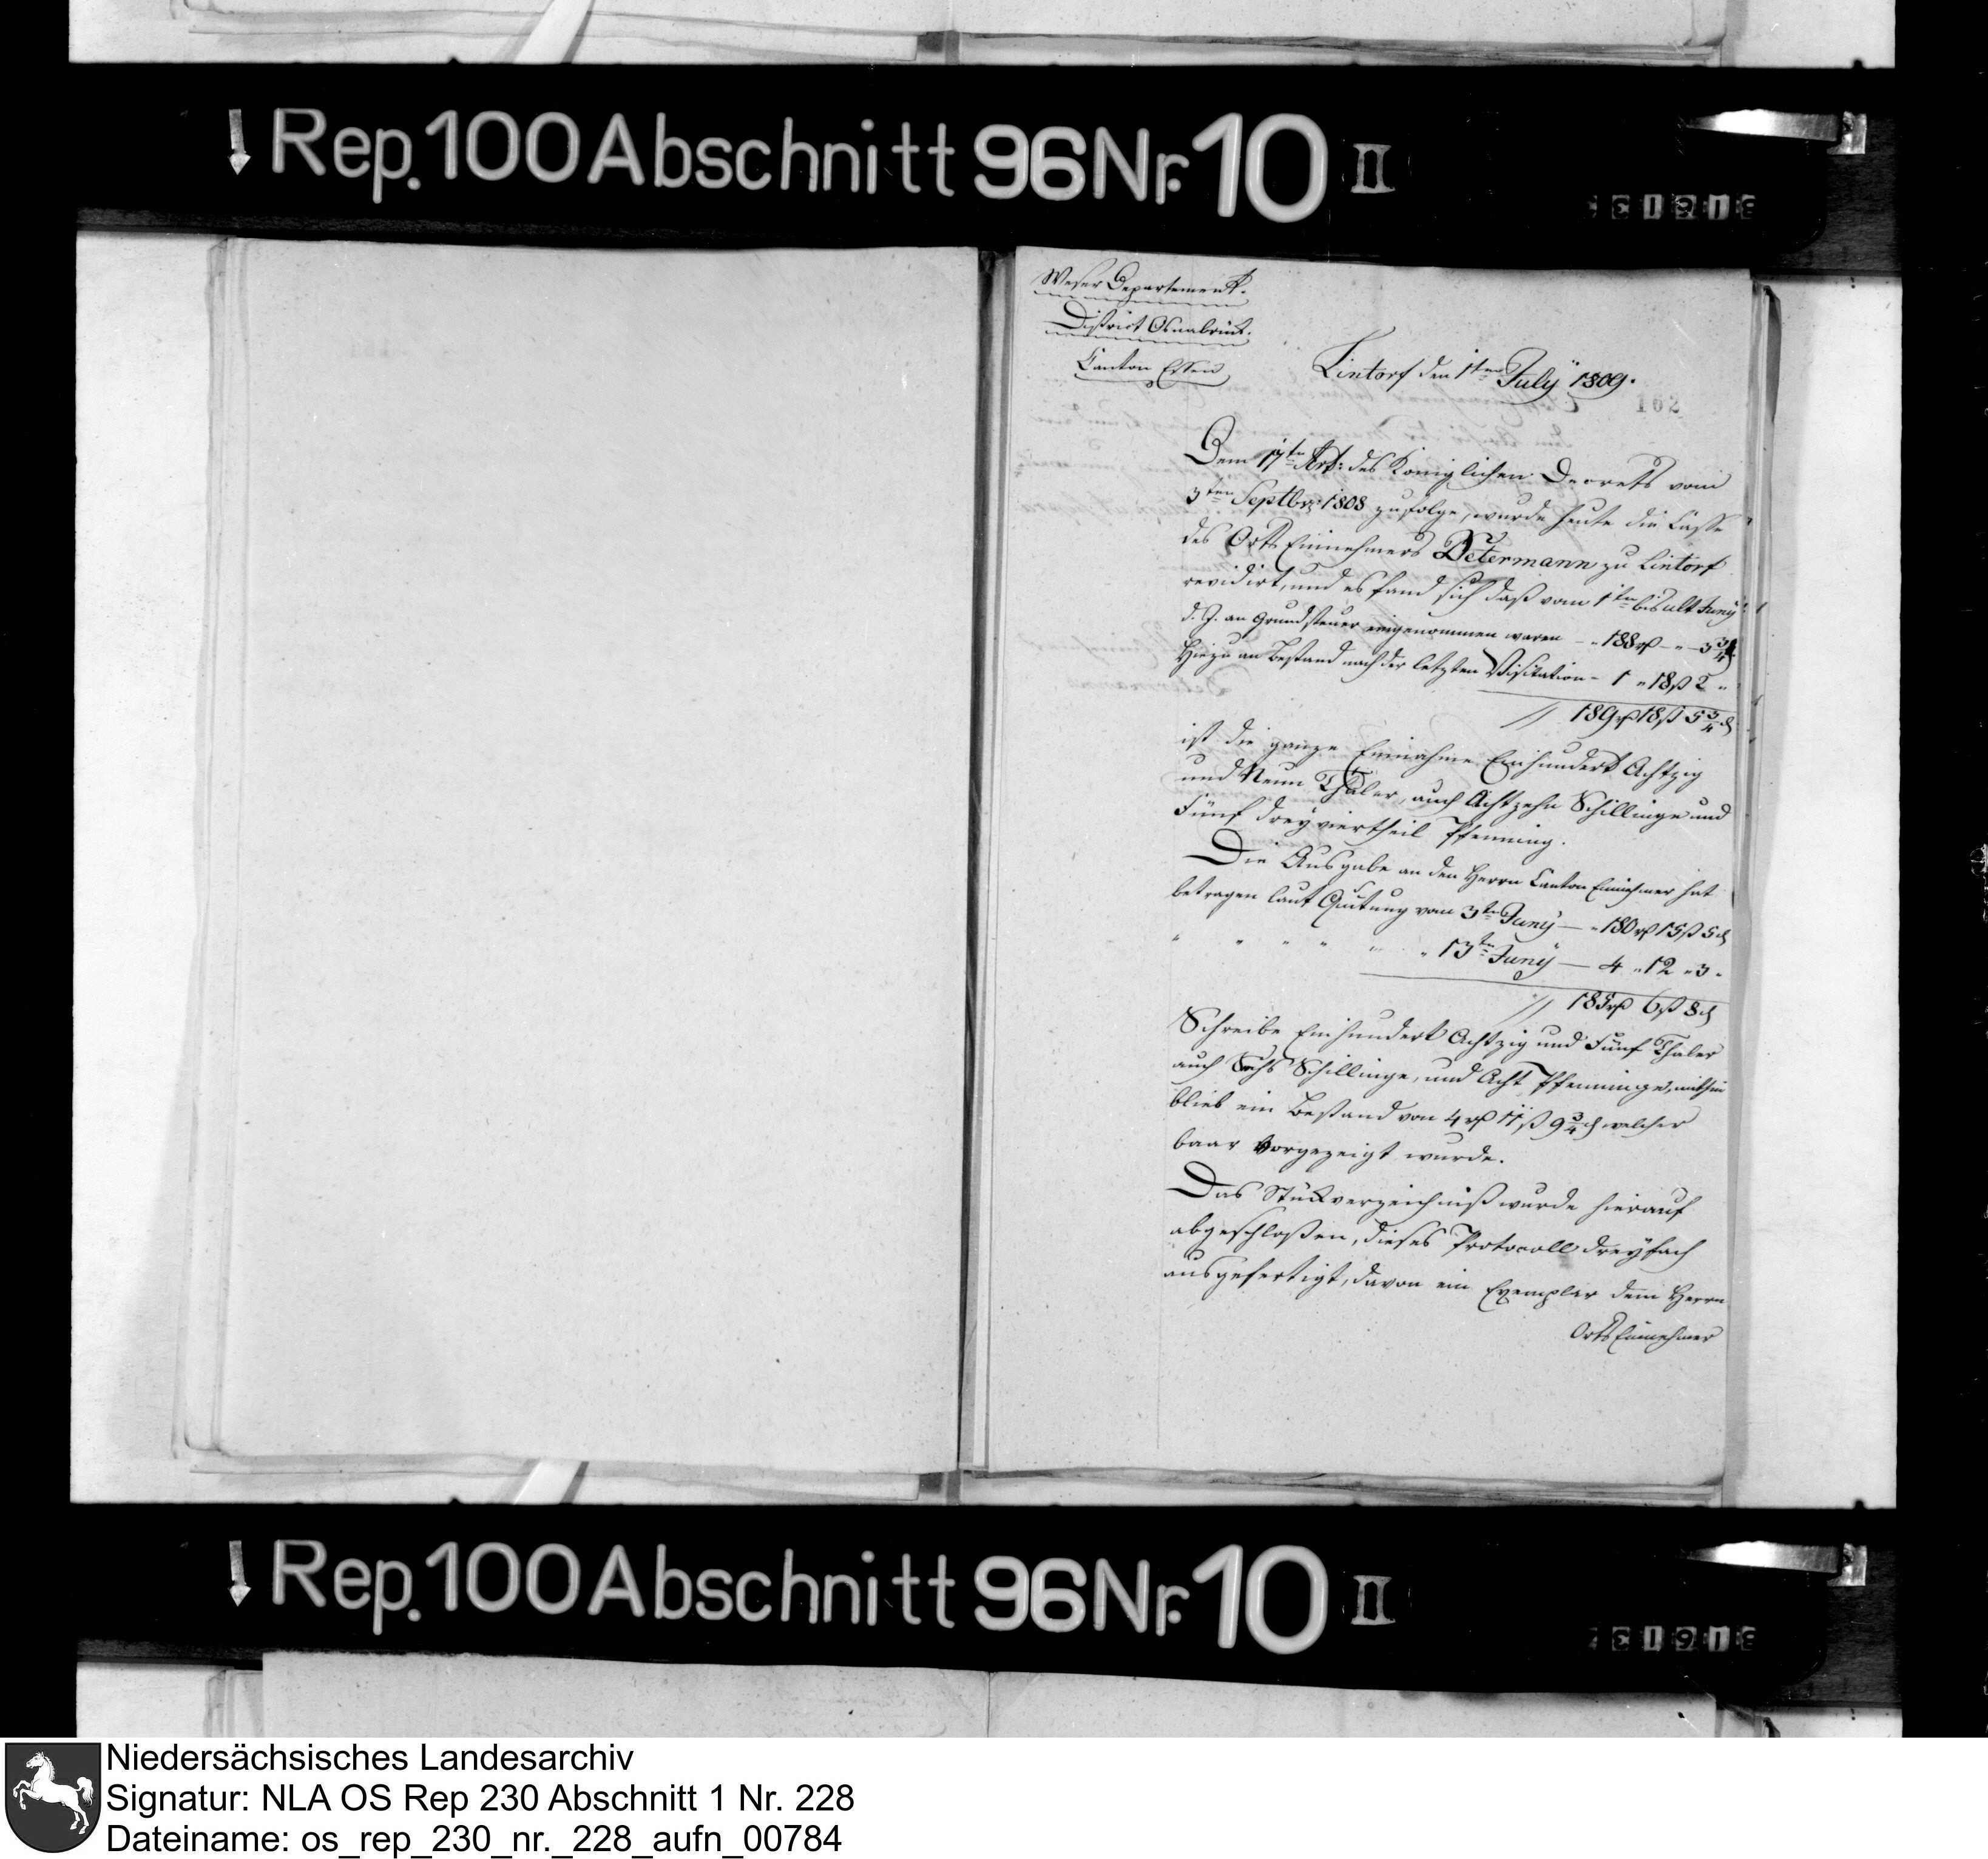 Rep. 100 Abschnitt 96 Nr. 10 II
Weser Departement.
District Osnabrück.
Canton Essen
Lintorf den 1ten July 1809.
162
Dem 17ten Art: des Königlichen Decrets vom
3ten Septbr: 1808 zufolge, wurde heute die Casse
des Orts Einnehmers Determann zu Lintorf
revidirt, und es fand sich daß vom 1ten bis ult Juny
d. J. an Grundsteuer eingenommen waren - " 188 rß - " - 3 3/4 d
Hiezu an Bestand nach der letzten Visitation - 1 " 18 ß 2 "
// 189 rß 18 ß 5 3/4 d
ist die ganze Einnahme Einhundert Achtzig
und Neun Thaler, auch Achtzehn Schillinge und
Fünf dreyviertheil Pfenning.
Die Ausgabe an den Herrn Canton Einnehmer hat
betragen laut Quitung vom 3ten Juny — " 180 rß 15 ß 5 d
" " " " " " 13ten Juny — 4 " 12 " 3 "
// 185 rß 6 ß 8 d
Schreibe Einhundert Achtzig und Fünf Thaler
auch Sechs Schillinge, und Acht Pfenninge, mithin
blieb ein Bestand von 4 rß 11 ß 9 3/4 d welcher
baar vorgezeigt wurde.
Das Stückverzeichniß wurde hierauf
abgeschloßen, dieses Protocoll dreyfach
ausgefertigt, davon ein Exemplar dem Herrn
Orts Einnehmer
Rep. 100 Abschnitt 96 Nr. 10 II
Niedersächsisches Landesarchiv
Signatur: NLA OS Rep 230 Abschnitt 1 Nr. 228
Dateiname: os_rep_230_nr._228_aufn_00784